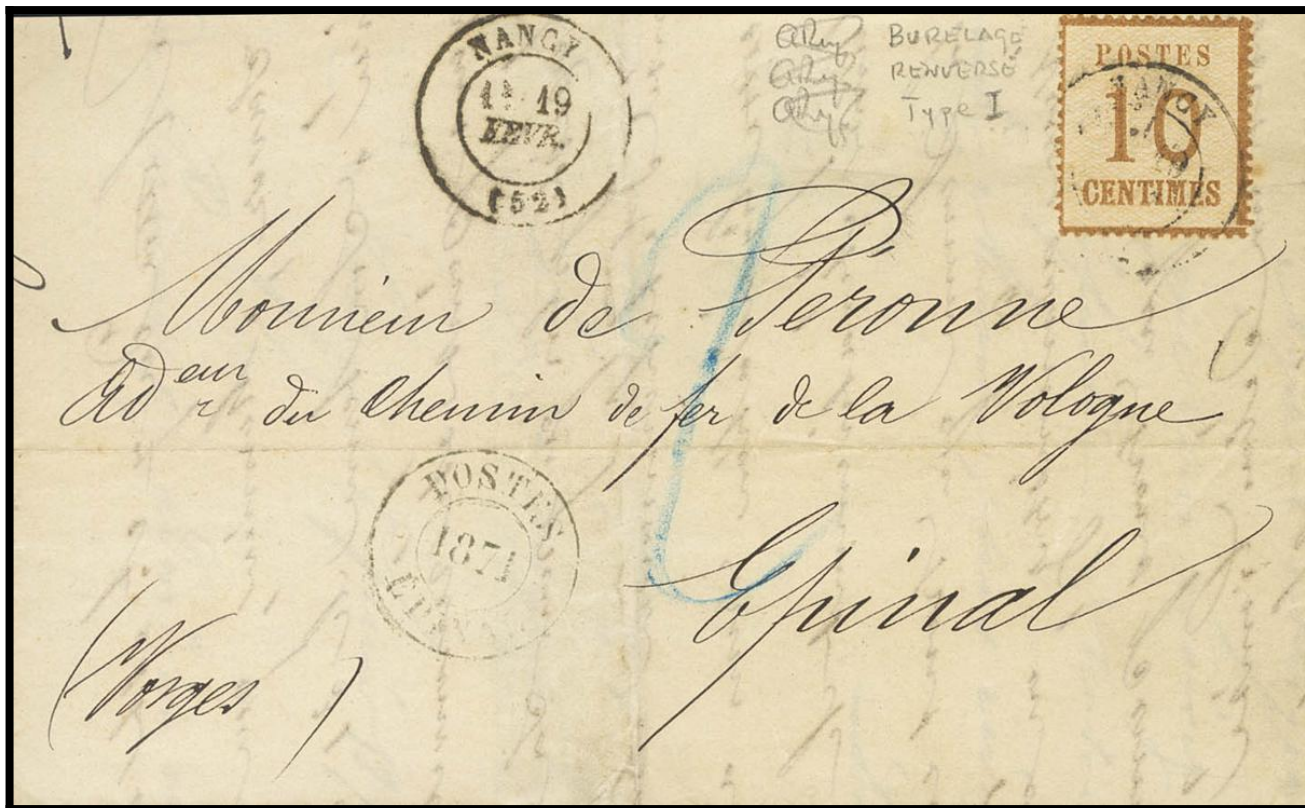 NANCY
19
FEVR.
(52)
BURELAGE
RENVERSÉ
Type I
POSTES
10
CENTIMES
NANCY
Monsieur de Peronne
Ad eur du Chemin de fer de la Vologne
POSTES
1871
Epinal
(Vosges)